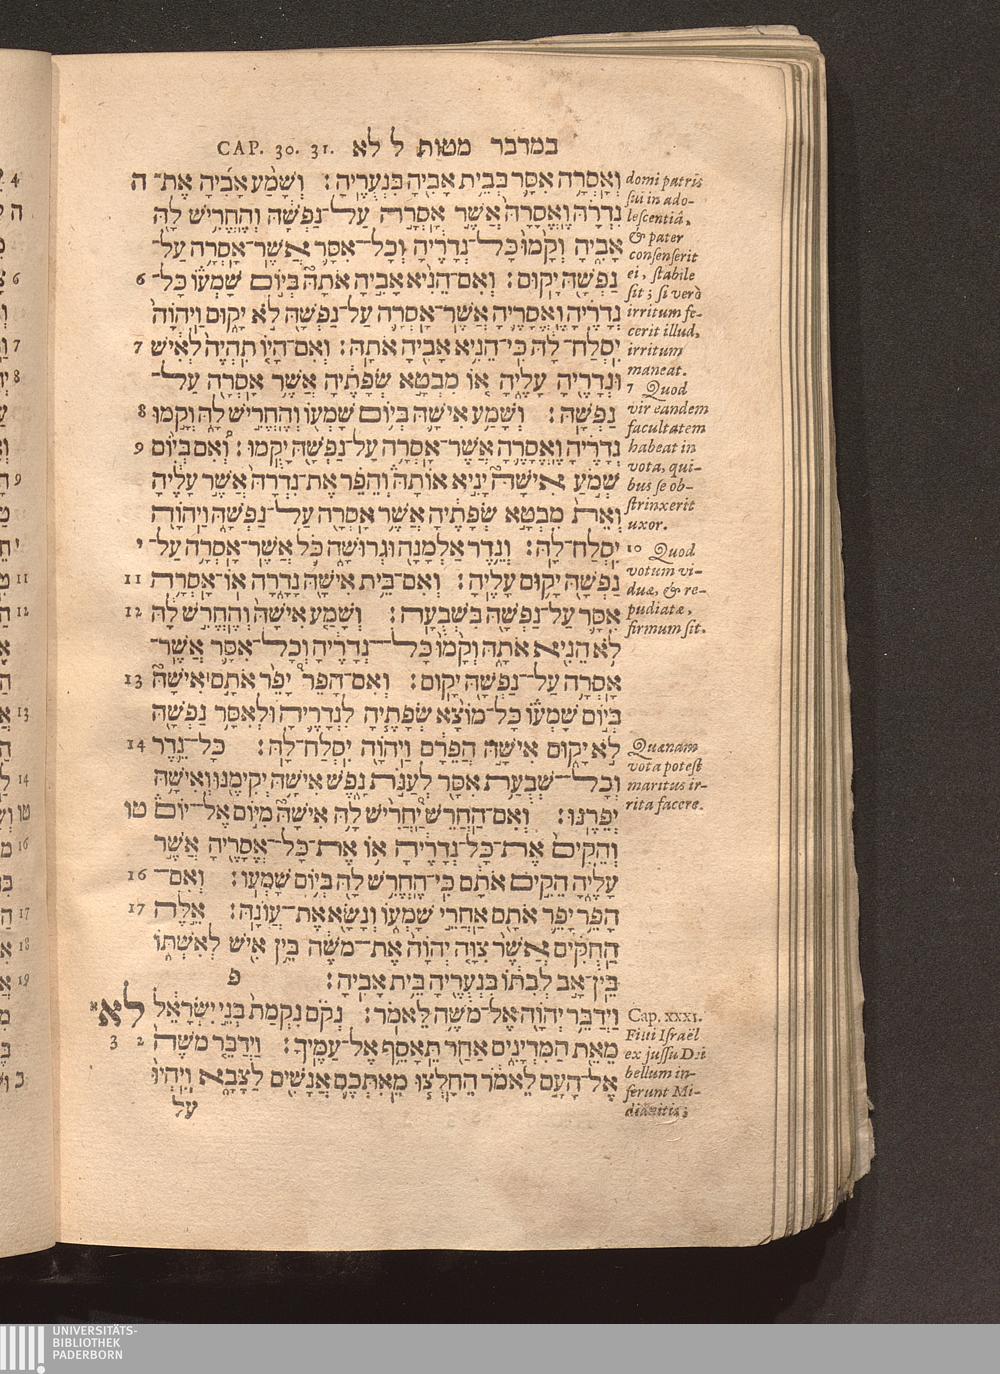 במדבר מטות ל לא CAP. 30. 31.
וְאָסְרָה אִסָּר בְּבֵית אָבִיהָ בִּנְעֻרֶיהָ׃ וְשָׁמַע אָבִיהָ אֶת־ ה
נִדְרָהּ וֶאֱסָרָהּ אֲשֶׁר אָסְרָה עַל־נַפְשָׁהּ וְהֶחֱרִישׁ לָהּ
אָבִיהָ וְקָמוּ כָּל־נְדָרֶיהָ וְכָל־אִסָּר אֲשֶׁר־אָסְרָה עַל־
נַפְשָׁהּ יָקוּם׃ וְאִם־הֵנִיא אָבִיהָ אֹתָהּ בְּיוֹם שָׁמְעוֹ כָּל־ 6
נְדָרֶיהָ וֶאֱסָרֶיהָ אֲשֶׁר־אָסְרָה עַל־נַפְשָׁהּ לֹא יָקוּם וַיהוָה
יִסְלַח־לָהּ כִּי־הֵנִיא אָבִיהָ אֹתָהּ׃ וְאִם־הָיוֹ תִהְיֶה לְאִישׁ 7
וּנְדָרֶיהָ עָלֶיהָ אוֹ מִבְטָא שְׂפָתֶיהָ אֲשֶׁר אָסְרָה עַל־
נַפְשָׁהּ׃ וְשָׁמַע אִישָׁהּ בְּיוֹם שָׁמְעוֹ וְהֶחֱרִישׁ לָהּ וְקָמוּ 8
נְדָרֶיהָ וֶאֱסָרֶהָ אֲשֶׁר־אָסְרָה עַל־נַפְשָׁהּ יָקֻמוּ׃ וְאִם בְּיוֹם 9
שְׁמֹעַ אִישָׁהּ יָנִיא אוֹתָהּ וְהֵפֵר אֶת־נִדְרָהּ אֲשֶׁר עָלֶיהָ
וְאֵת מִבְטָא שְׂפָתֶיהָ אֲשֶׁר אָסְרָה עַל־נַפְשָׁהּ וַיהוָה
יִסְלַח־לָהּ׃ וְנֵדֶר אַלְמָנָה וּגְרוּשָׁה כֹּל אֲשֶׁר־אָסְרָה עַל־ י
נַפְשָׁהּ יָקוּם עָלֶיהָ׃ וְאִם־בֵּית אִישָׁהּ נָדָרָה אוֹ־אָסְרָה 11
אִסָּר עַל־נַפְשָׁהּ בִּשְׁבֻעָה׃ וְשָׁמַע אִישָׁהּ וְהֶחֱרִשׁ לָהּ 12
לֹא הֵנִיא אֹתָהּ וְקָמוּ כָּל־נְדָרֶיהָ וְכָל־אִסָּר אֲשֶׁר־
אָסְרָה עַל־נַפְשָׁהּ יָקוּם׃ וְאִם־הָפֵר יָפֵר אֹתָם אִישָׁהּ 13
בְּיוֹם שָׁמְעוֹ כָּל־מוֹצָא שְׂפָתֶיהָ לִנְדָרֶיהָ וּלְאִסַּר נַפְשָׁהּ
לֹא יָקוּם אִישָׁהּ הֲפֵרָם וַיהוָה יִסְלַח־לָהּ׃ כָּל־נֵדֶר 14
וְכָל־שְׁבֻעַת אִסָּר לְעַנֹּת נָפֶשׁ אִישָׁהּ יְקִימֶנּוּ וְאִישָׁהּ
יְפֵרֶנּוּ׃ וְאִם־הַחֲרֵשׁ יַחֲרִישׁ לָהּ אִישָׁהּ מִיּוֹם אֶל־יוֹם טו
וְהֵקִים אֶת־כָּל־נְדָרֶיהָ אוֹ אֶת־כָּל־אֱסָרֶיהָ אֲשֶׁר
עָלֶיהָ הֵקִים אֹתָם כִּי־הֶחֱרִשׁ לָהּ בְּיוֹם שָׁמְעוֹ׃ וְאִם־ 16
הָפֵר יָפֵר אֹתָם אַחֲרֵי שָׁמְעוֹ וְנָשָׂא אֶת־עֲוֹנָהּ׃ אֵלֶּה 17
הַחֻקִּים אֲשֶׁר צִוָּה יְהוָה אֶת־מֹשֶׁה בֵּין אִישׁ לְאִשְׁתּוֹ
בֵּין־אָב לְבִתּוֹ בִּנְעֻרֶיהָ בֵּית אָבִיהָ׃ פ
וַיְדַבֵּר יְהוָה אֶל־מֹשֶׁה לֵּאמֹר׃ נְקֹם נִקְמַת בְּנֵי יִשְׂרָאֵל לא א
מֵאֵת הַמִּדְיָנִים אַחַר תֵּאָסֵף אֶל־עַמֶּיךָ׃ וַיְדַבֵּר מֹשֶׁה 2 3
אֶל־הָעָם לֵאמֹר הֵחָלְצוּ מֵאִתְּכֶם אֲנָשִׁים לַצָּבָא וְיִהְיוּ
עַל
domi patris
sui in ado-
lescentiâ,
& pater
consenserit
ei, stabile
sit; si verò
irritum fe-
cerit illud,
irritum
maneat.
7 Quod
vir eandem
facultatem
habeat in
vota, qui-
bus se ob-
strinxerit
uxor.
10 Quod
votum vi-
duæ, & re-
pudiatæ,
firmum sit.
Quænam
vota potest
maritus ir-
rita facere.
Cap. xxxi.
Filii Israël
ex jussu Dei
bellum in-
ferunt Mi-
dianitis;
4
ה
6
7
8
9
י
11
12
13
14
טו
16
17
18
19
כ
UNIVERSITÄTS-
BIBLIOTHEK
PADERBORN